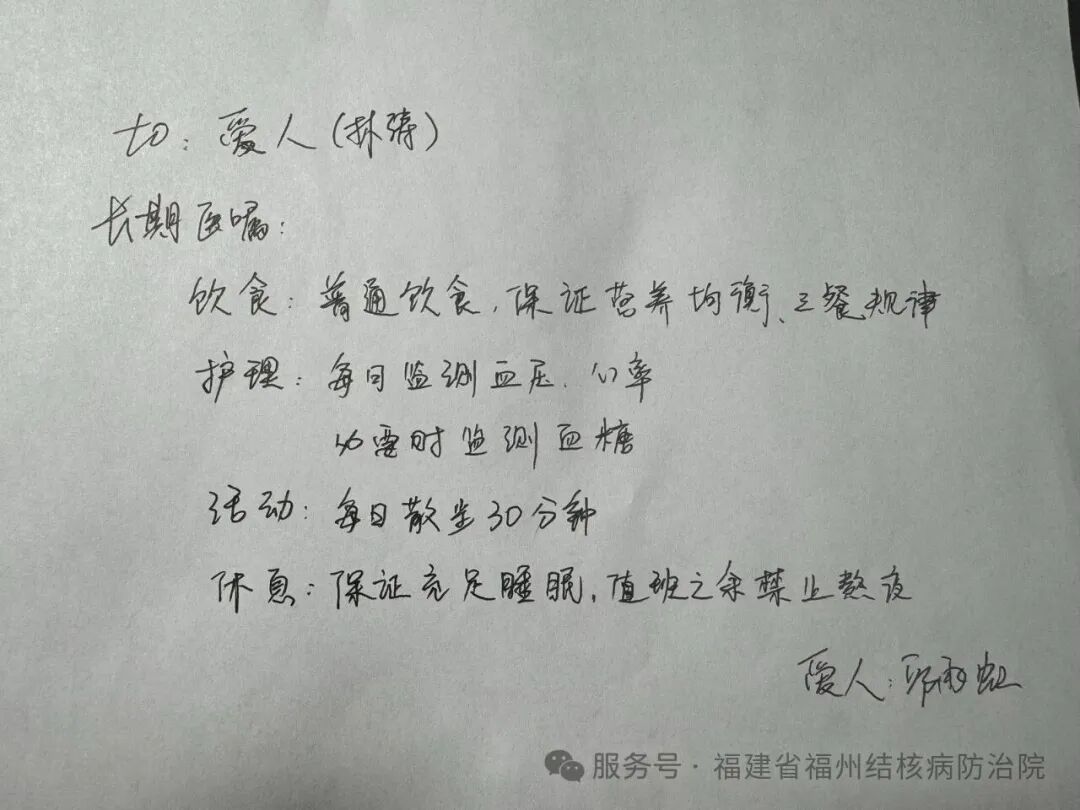 切：爱人（林涛）
长期医嘱：
饮食：普通饮食，保证营养均衡、三餐规律
护理：每日监测血压、心率
必要时监测血糖
活动：每日散步30分钟
休息：保证充足睡眠，值班之余禁止熬夜
爱人：
服务号·福建省福州结核病防治院